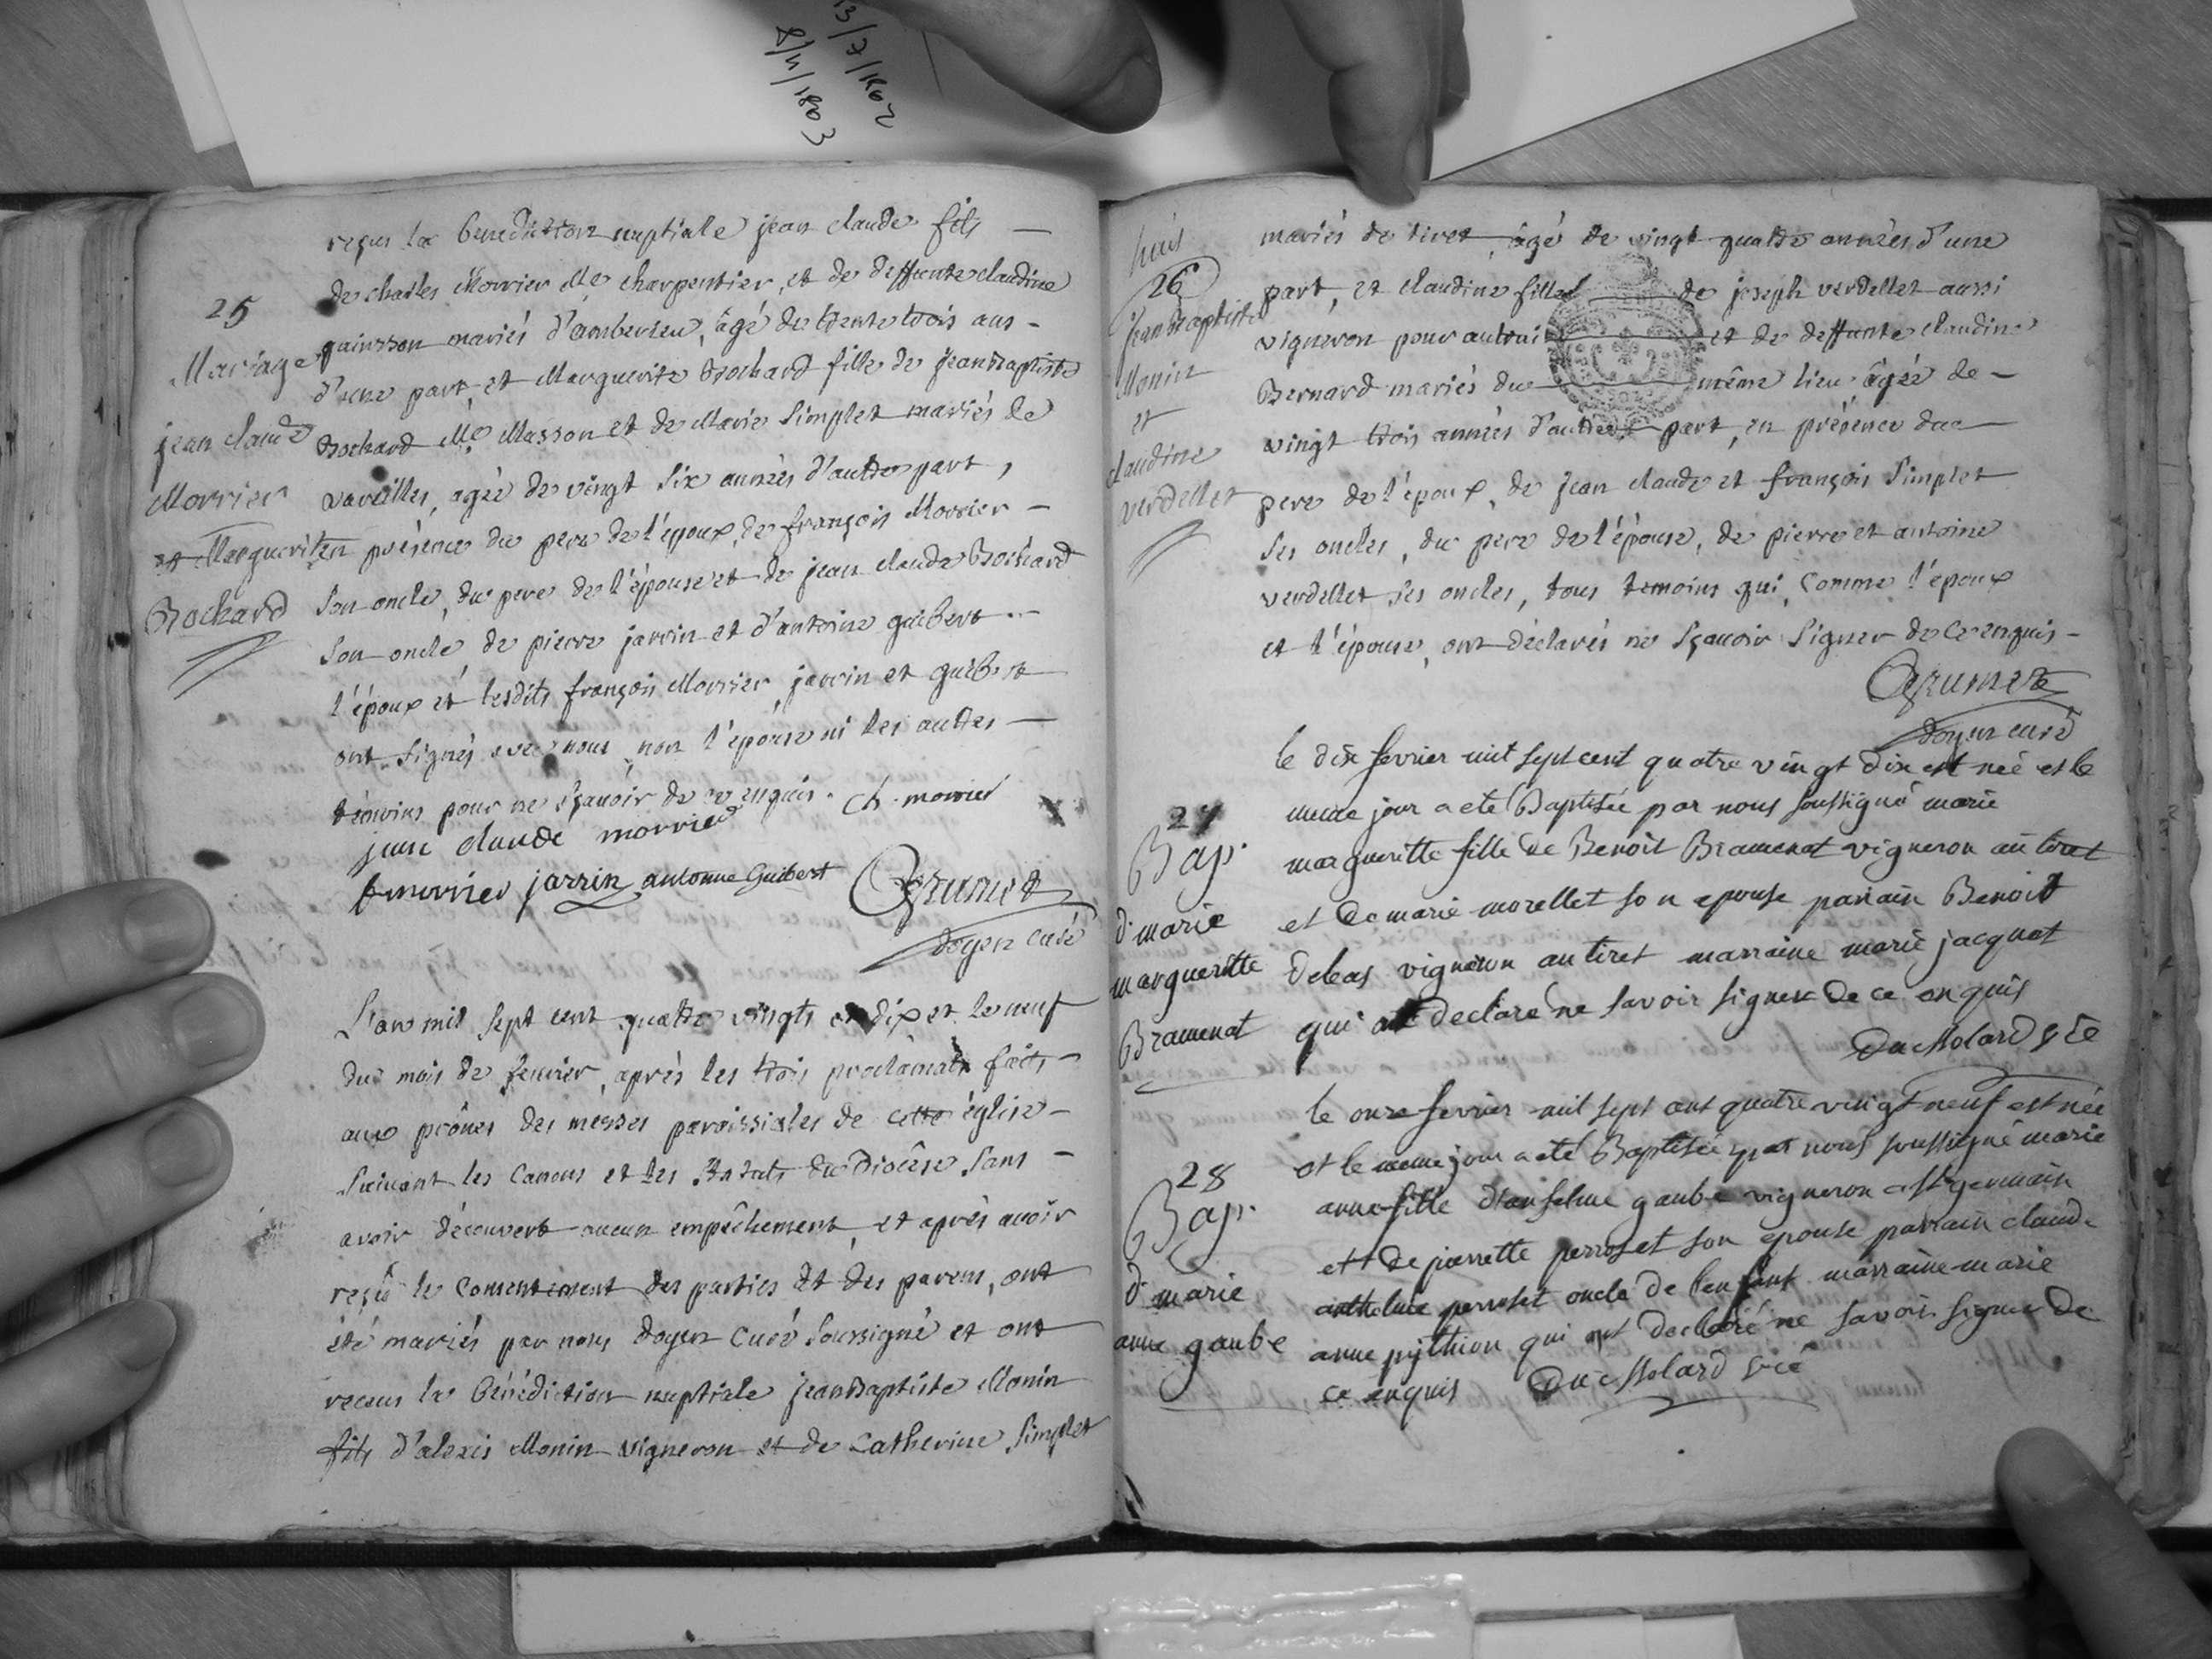 13/7/1802
8/4/1803
reçus la benediction nuptiale jean claude fils
de charles Morrier Me charpentier, et de deffunte claudine
25
mariés d'amberieu, âgé de trente trois ans
Mariage
d'une part, et Marguerite Bochard fille de jeanBaptiste
jean claude
Bochard Me Masson et de Marie Simplet mariés de
Morrier
vareilles, agée de vingt six années d'autre part,
et Marguerite
en présence du pere de l'époux, de françois Morrier
Bochard
son oncle, du pere de l'épouse et de jean claude Bochard
son oncle de pierre jarrin et d'antoine guibert
l'époux et lesdits françois Morrier, jarrin et guibert
ont signés avec nous non l'épouse ni les autres
témoins pour ne sçavoir de ce enquis. Ch. morrier
jean claude morrier
f morrier jarrin antoinne Guibert Grumet
doyen curé
L'an mil sept cent quattre vingts et dix et le neuf
du mois de fevrier, après les trois proclamats faits
aux prônes des messes paroissiales de cette église
suivant les canons et les statuts du diocêse sans
avoir découvert aucun empêchement, et après avoir
reçu le consentement des parties et des parens, ont
été mariés par nous doyen curé soussigné et ont
recus la bénédiction nuptiale jeanBaptiste Monin
fils d'alexis Monin vigneron et de Catherine Simplet
mariés de tiret, âgé de vingt quattre années, d'une
26
part, et claudine fille de joseph verdellet aussi
jeanBaptiste
vigneron pour autrui et de deffunte claudine
Monin
Bernard mariés du même lieu âgée de
et
vingt trois années d'autre part, en présence du
claudine
pere de l'époux, de jean claude et françois Simplet
verdellet
ses oncles, du pere de l'épouse, de pierre et antoine
verdellet ses oncles, tous temoins qui, comme l'époux
et l'épouse, ont déclarés ne sçavoir signer de ce enquis
Grumet
doyen curé
le dix fevrier mil sept cent quatre vingt dix est née et le
27
meme jour a eté Baptisée par nous soussigné marie
Bap.
margueritte fille de Benoit Bramenat vigneron au tiret
d. marie
et de marie morellet son epouse parrain Benoit
margueritte
debas vigneron au tiret marraine marie jacquet
Bramenat
qui ont declaré ne savoir signer de ce enquis
DuMolard vre
le onze fevrier mil sept cent quatre vingt neuf est née
28
et le meme jour a eté Baptisée par nous soussigné marie
Bap.
anne fille d'anselme gaube vigneron a st germain
et de pierrette perroset son epouse parrain claude
d. marie
anthelme perroset oncle de l'enfant marraine marie
anne gaube
anne pythion qui ont declaré ne savoir signer de
ce enquis DuMolard vre